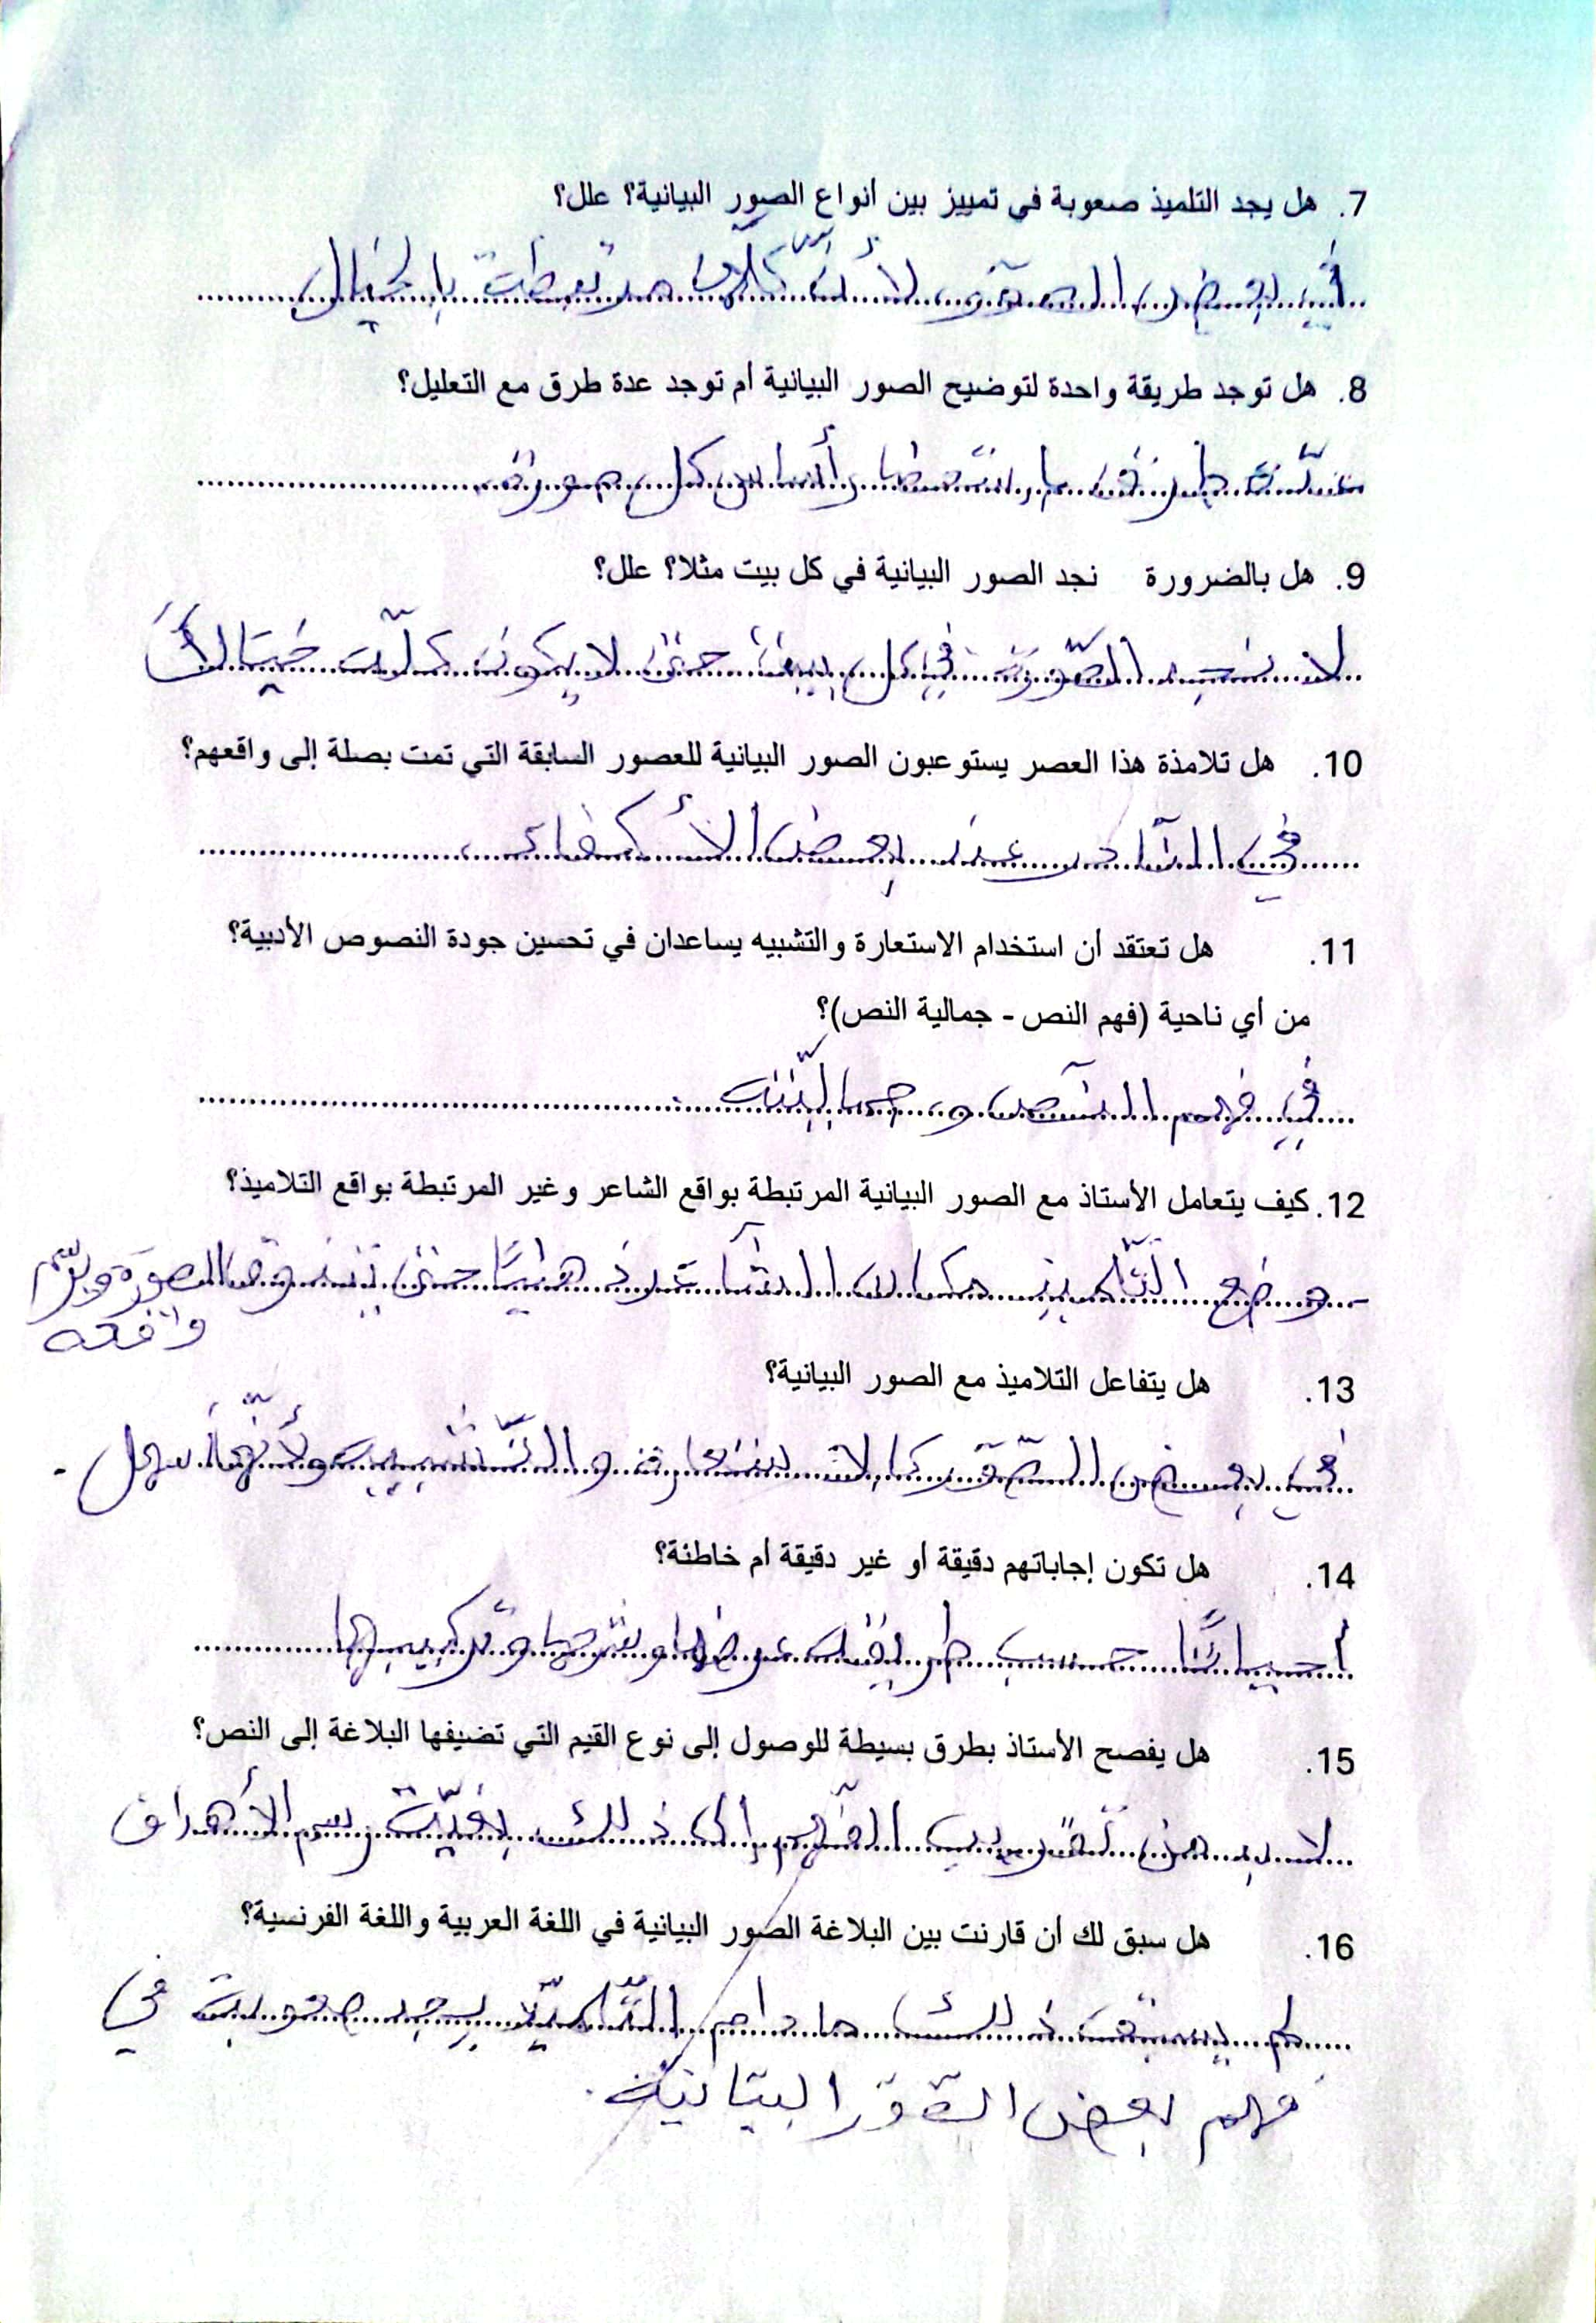 7. هل يجد التلميذ صعوبة في تمييز بين أنواع الصور البيانية؟ علل؟
في بعض الصور لأن كلّها مرتبطة بالخيال
8. هل توجد طريقة واحدة لتوضيح الصور البيانية أم توجد عدة طرق مع التعليل؟
عدّة طرق أساس كل صورة
9. هل بالضرورة نجد الصور البيانية في كل بيت مثلا؟ علل؟
لا نجد الصّورة في كل بيت حتى لا يكون كلّه خيالاً
10. هل تلامذة هذا العصر يستوعبون الصور البيانية للعصور السابقة التي تمت بصلة إلى واقعهم؟
في النّادر عند بعض الأكفاء
11. هل تعتقد أن استخدام الاستعارة والتشبيه يساعدان في تحسين جودة النصوص الأدبية؟
من أي ناحية (فهم النص - جمالية النص)؟
في فهم النّص و جماليّته
12. كيف يتعامل الأستاذ مع الصور البيانية المرتبطة بواقع الشاعر وغير المرتبطة بواقع التلاميذ؟
- وضع التّلميذ مكان الشّاعر حتى الصورة
13. هل يتفاعل التلاميذ مع الصور البيانية؟
في بعض الصّور كالاستعارة و التّشبيه لأنّها سهل.
14. هل تكون إجاباتهم دقيقة أو غير دقيقة أم خاطئة؟
أحيانًا حسب طريقة عرضها و شرحها و تركيبها
15. هل يفصح الأستاذ بطرق بسيطة للوصول إلى نوع القيم التي تضيفها البلاغة إلى النص؟
لا بد من تقريب الفهم إلى ذلك بغيّة رسم الأهداف
16. هل سبق لك أن قارنت بين البلاغة الصور البيانية في اللغة العربية واللغة الفرنسية؟
لم يسبق ذلك ما دام التّلميذ يجد صعوبة في
فهم بعض الصّور البيانيّة.